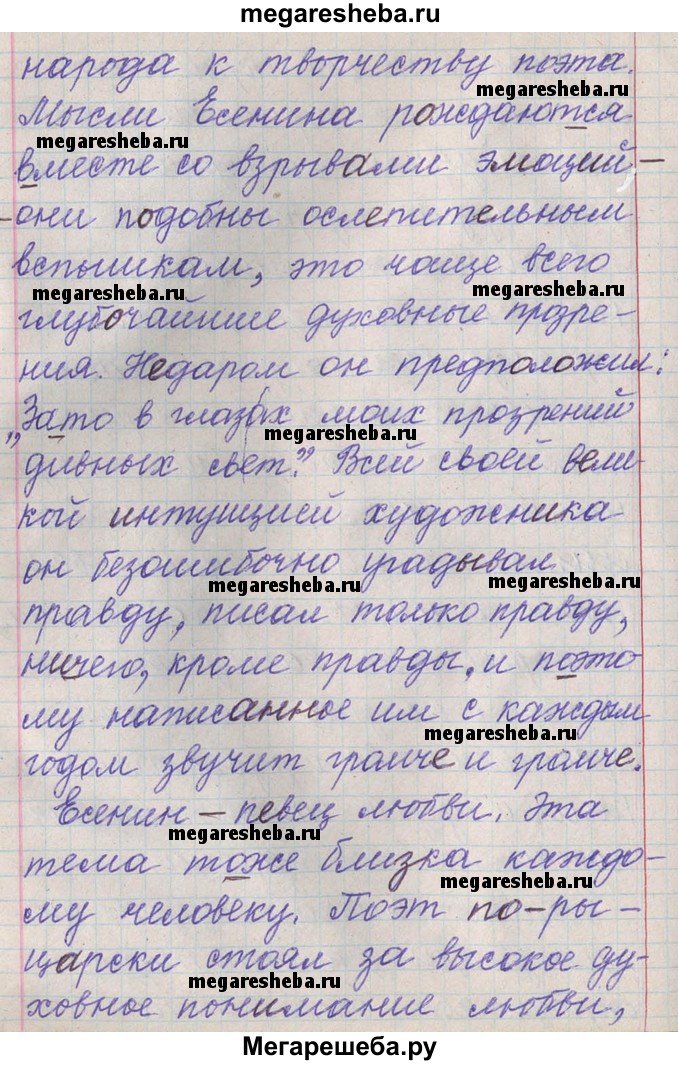 megaresheba.ru
народа к творчеству поэта.
megaresheba.ru
Мысли Есенина рождаются
megaresheba.ru
вместе со взрывами эмоций –
– они подобны ослепительным
вспышкам, это чаще всего
megaresheba.ru
megaresheba.ru
глубочайшие духовные прозре-
ния. Недаром он предположил:
„Зато в глазах моих прозрений
megaresheba.ru
дивных свет." Всей своей вели-
кой интуицией художника
он безошибочно угадывал
megaresheba.ru
megaresheba.ru
правду, писал только правду,
ничего, кроме правды, и поэто
му написанное им с каждым
megaresheba.ru
годом звучит громче и громче.
Есенин – певец любви. Эта
megaresheba.ru
тема тоже близка каждо-
megaresheba.ru
му человеку. Поэт по-ры-
царски стоял за высокое ду-
megaresheba.ru
ховное понимание любви,
Мегарешеба.ру